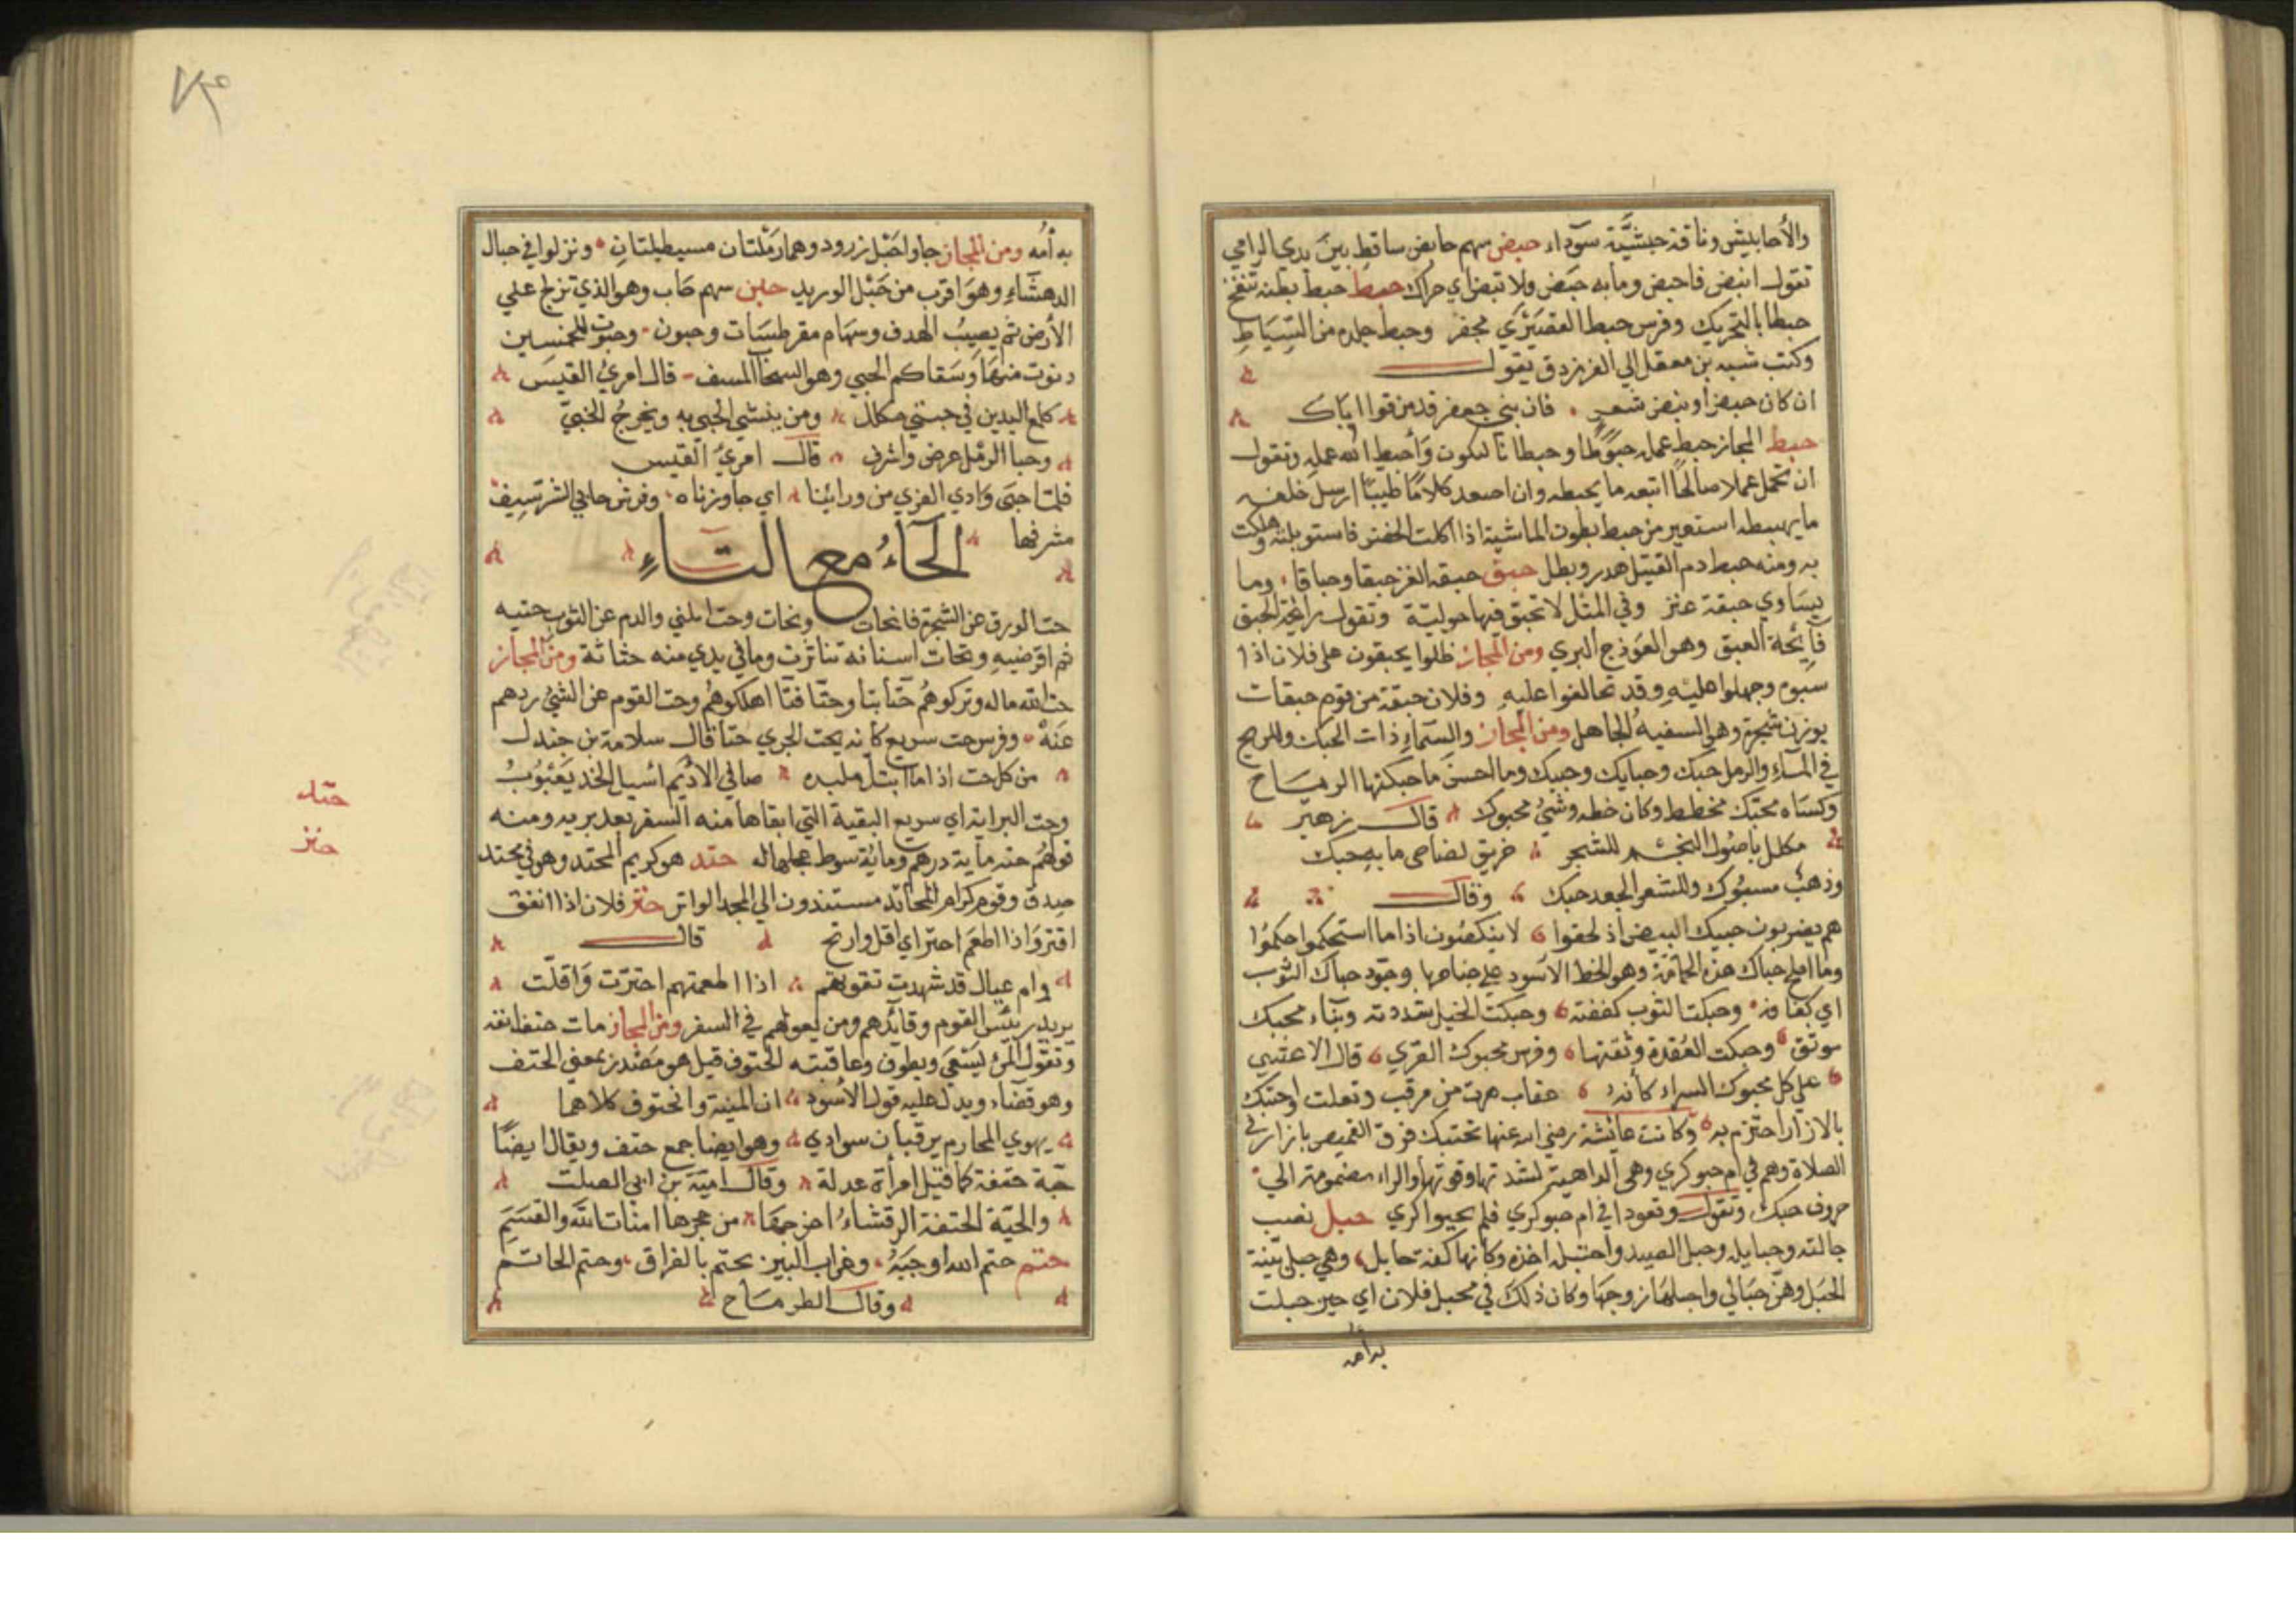 والأحابيش وناقة حبشيّة سوداء حبض سهم حابض ساقط بين يدي الرامي
تقول انبض فاحبض وما به حبض ولا نبض اي حراك حبط حبط بطنه تنفخ
حبطا بالتحريك وفرس حبط القصيري مجفر وحبط جلده من السّياط
وكتب شبه بن معقل الي الفرزدق يقول
ان كان حبض او نبض شعر فان بني جعفر قد مزقوا اباك
حبط المجاز حبط عمله حبوطا وحبطا نا لسكون وأحبط الله عمله وتقول
ان تحمل عملا صالحا اتبعه ما يحبطه وان اصعد كلاما طيبا ارسل خلفه
ما يهبطه استعير من حبط بطون الماشية اذا اكلت الخضر فاستوبلته وهلكت
به ومنه حبط دم القتيل هدر وبطل حبق حبقه الغز حبقا وحباقا وما
يساوي حبقة عنز وفي المثل لا تحبق فيها حوليّة وتقول رائحة الحبق
فائحة العبق وهو الفوذج البري ومن المجاز ظلوا يحبقون علي فلان اذا
سبوه وجهلوا عليه وقد تحالفوا عليه وفلان حبقة من قوم حبقات
بوزن شجرة وهو السفيه الجاهل ومن المجاز والسماء ذات الحبك وللريح
في الماء والرمل حبك وحبايك وحبيك وما احسن ما حبكتها الرياح
وكساء محبّك مخطط وكان خطه وشيء محبوك قال زهير
مكلل باصول النجم للشجر خريق لضاحي ما به حبك
وذهب مسبوك وللشعر الجعد حبك وقال
هم يضربون حبيك البيض اذ لحقوا لا ينكصون اذا ما استحكموا حكموا
وما املح حباك هذه الحمامة وهو الخط الاسود علي جناحها وجود حباك الثوب
اي كفافه وحبكت الثوب كففته وحبكت الحبل شددته وبناء محبك
موثق وحبكت العقدة وثقتها وفرس محبوك القري قال الاعشي
علي كل محبوك السراء كأنه عقاب هوت من مرقب وتعلت واحتبك
بالازار احتزم به وكانت عائشة رضي الله عنها تحتبك فوق القميص بازار في
الصلاة وهم في ام حبوكري وهي الداهية لشدتها وقوتها والراء مضمومة الي
حروف حبك وتقول وقعودا في ام حبوكري فلم يحيوا كري حبل نصب
حبالته وحبايله وحبل الصيد واحتبله اخذه وكأنها كفة حابل وهي حبلي بيّنة
الحبل وهنّ حبالي واحبلها زوجها وكان ذلك في محبل فلان اي حين حبلت
به امه
به أمه ومن المجاز جاوا حبل زرود وهما رملتان مستطيلتان ونزلوا في حبال
الدهناء وهو اقرب من حبل الوريد حبن سهم حاب وهو الذي تزلج علي
الأرض ثم يصيب الهدف وسهام مقرطسات وحبون وحبوت للخمسين
دنوت منها وسقاكم الحبي وهو السحاب المسف قال امرئ القيس
كلمع اليدين في حبي مكلل ومن ينشئي الحبي به ويخرج الخبيّ
وحبا الرمل عرض واشرف قال امرئ القيس
فلما حبي وادي القري من ورائنا اي جاوزناه وفرش حابي الشرسيف
مشرفها
الحاء مع التاء
حت الورق عن الشجرة فانحات وتحات وحت المني والدم عن الثوب حتيه
ثم اقرضيه وتحات اسنانه تناثرت وما في يدي منه حتاتة ومن المجاز
حت الله ماله وتركوهم حتّا بتا وحتّا فتّا اهلكوهم وحت القوم عن الشيء ردهم
عنه وفرس حت سريع كأنه يحت الجري حتا قال سلامة بن جندل
من كل حت اذا ما ابتل ملبده صافي الاديم اسيل الخد يعبوب
وحت البراية اي سريع البقية التي ابقاها منه السفر بعد بريه ومنه
قولهم حته ماية درهم وماية سوط عجلها له حتد هو كريم المحتد وهو في محتد
صدق وقوم كرام المحاتد مستندون الي المجد الواتر حتر فلان اذا انفق
اقتر واذا اطعم احتر اي اقل وارتح قال
وام عيال قد شهدت تقوتهم اذا اطعمتهم احترت واقلّت
يريد رئيس القوم وقائدهم ومن يعولهم في السفر ومن المجاز مات حتف انفه
وتقول المرء ليسعي ويطوف وعاقبته الحتوف قيل هو مصدر بمعني الحتف
وهو قضاء ويدل عليه قول الاسود ان المنية والحتوف كلاهما
يهوي المحارم يرقبان سوادي وهو ايضا جمع حتف ويقال ايضا
حيّة حتفة كما قيل امرأة عدلة وقال امية بن ابي الصلت
والحيّة الحتفة الرقشاء اخرجها من جحرها امنات الله والقسم
حتم حتم الله اوجبه وغراب البين يحتم بالفراق وحتم الحاتم
وقال الطرماح
حتد
حتر